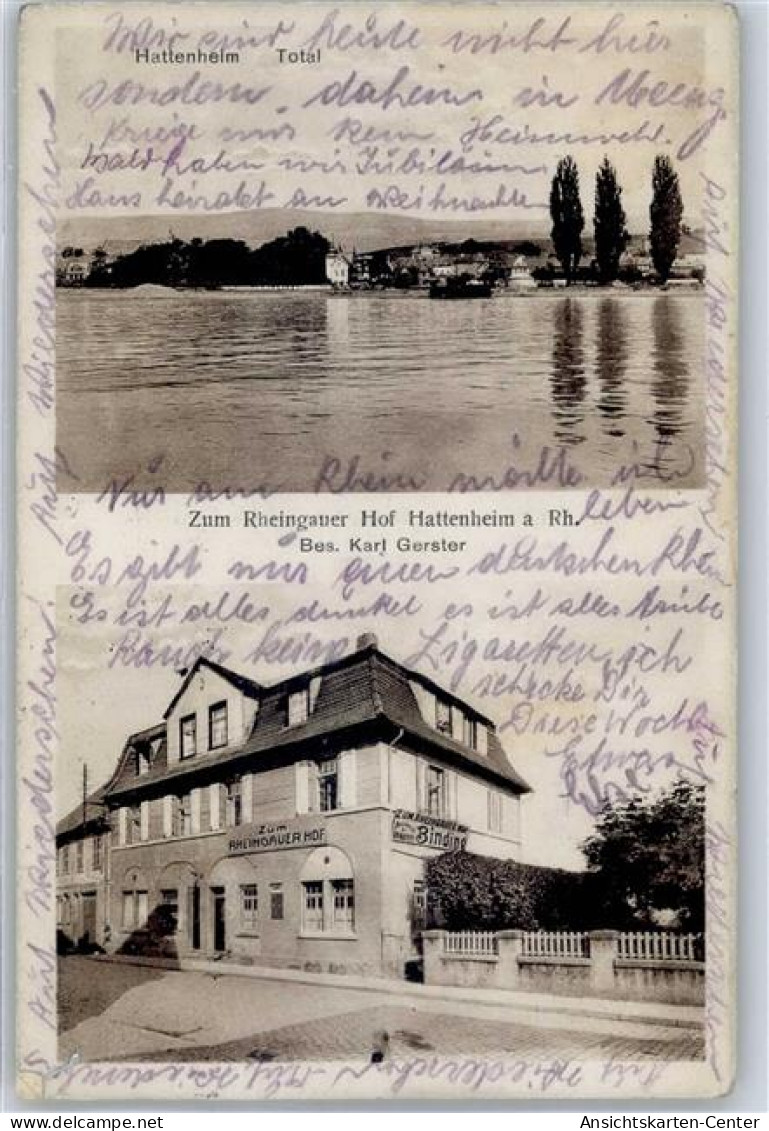 Wir sind heute nicht hier
Hattenheim Total
sondern daheim in
Kriege nur kein Heimweh.
Bald haben wir Jubiläum
Hans heiratet an Weihnachten
Nur am Rhein möchte ich
leben
Zum Rheingauer Hof Hattenheim a Rh.
Bes. Karl Gerster
Es gibt nur einen deutschen Rhein
Es ist alles dunkel es ist alles trübe
Rauch keine Zigaretten, ich
schicke Dir
Diese Woche
Etwas
Zum
RHEINGAUER HOF
ZUM RHEINGAUER HOF
Binding
Auf Wiedersehen
Auf Wiedersehen!
Auf Wiedersehen
Auf Wiedersehen
akpool.de
Ansichtskarten-Center